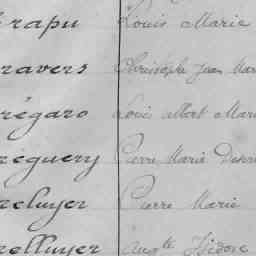 rapu Louis Marie
ravers Christophe Jean Mar
régaro Louis Albert Mari
réguery Pierre Marie
reluyer Pierre Marie
relluyer Aug^te Isidore